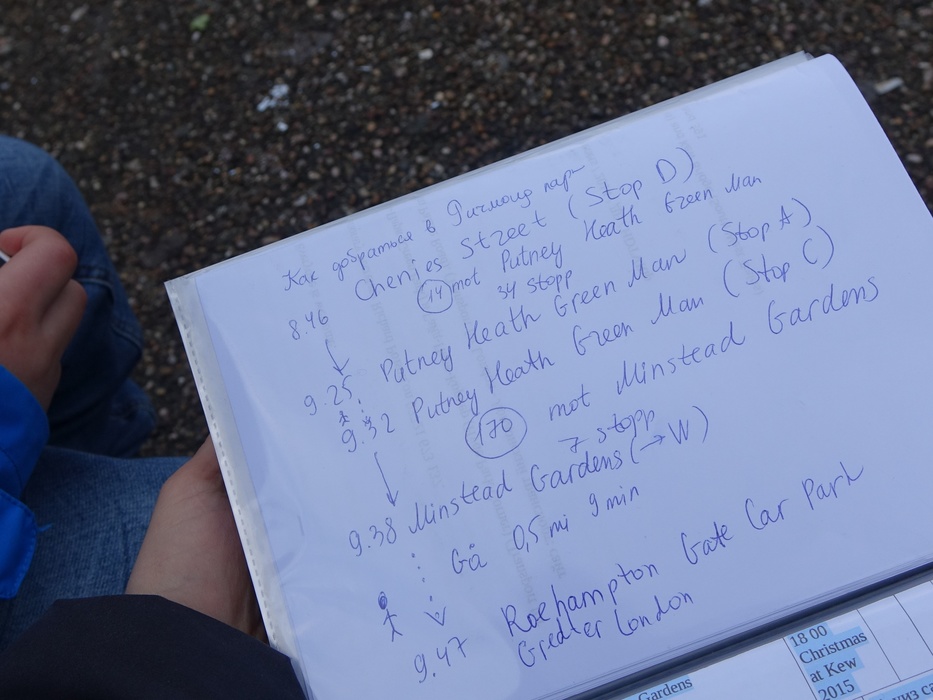 Как добраться в Ричмонд парк
Chenies Street (Stop D)
8.46 (14) mot Putney Heath Green Man
34 stopp
9.25 Putney Heath Green Man (Stop A)
9.32 Putney Heath Green Man (Stop C)
(170) mot Minstead Gardens
7 stopp
9.38 Minstead Gardens (→W)
Gå 0,5 mi 9 min
9.47 Roehampton Gate Car Park
Greater London
Gardens
18 00
Christmas
at Kew
2015